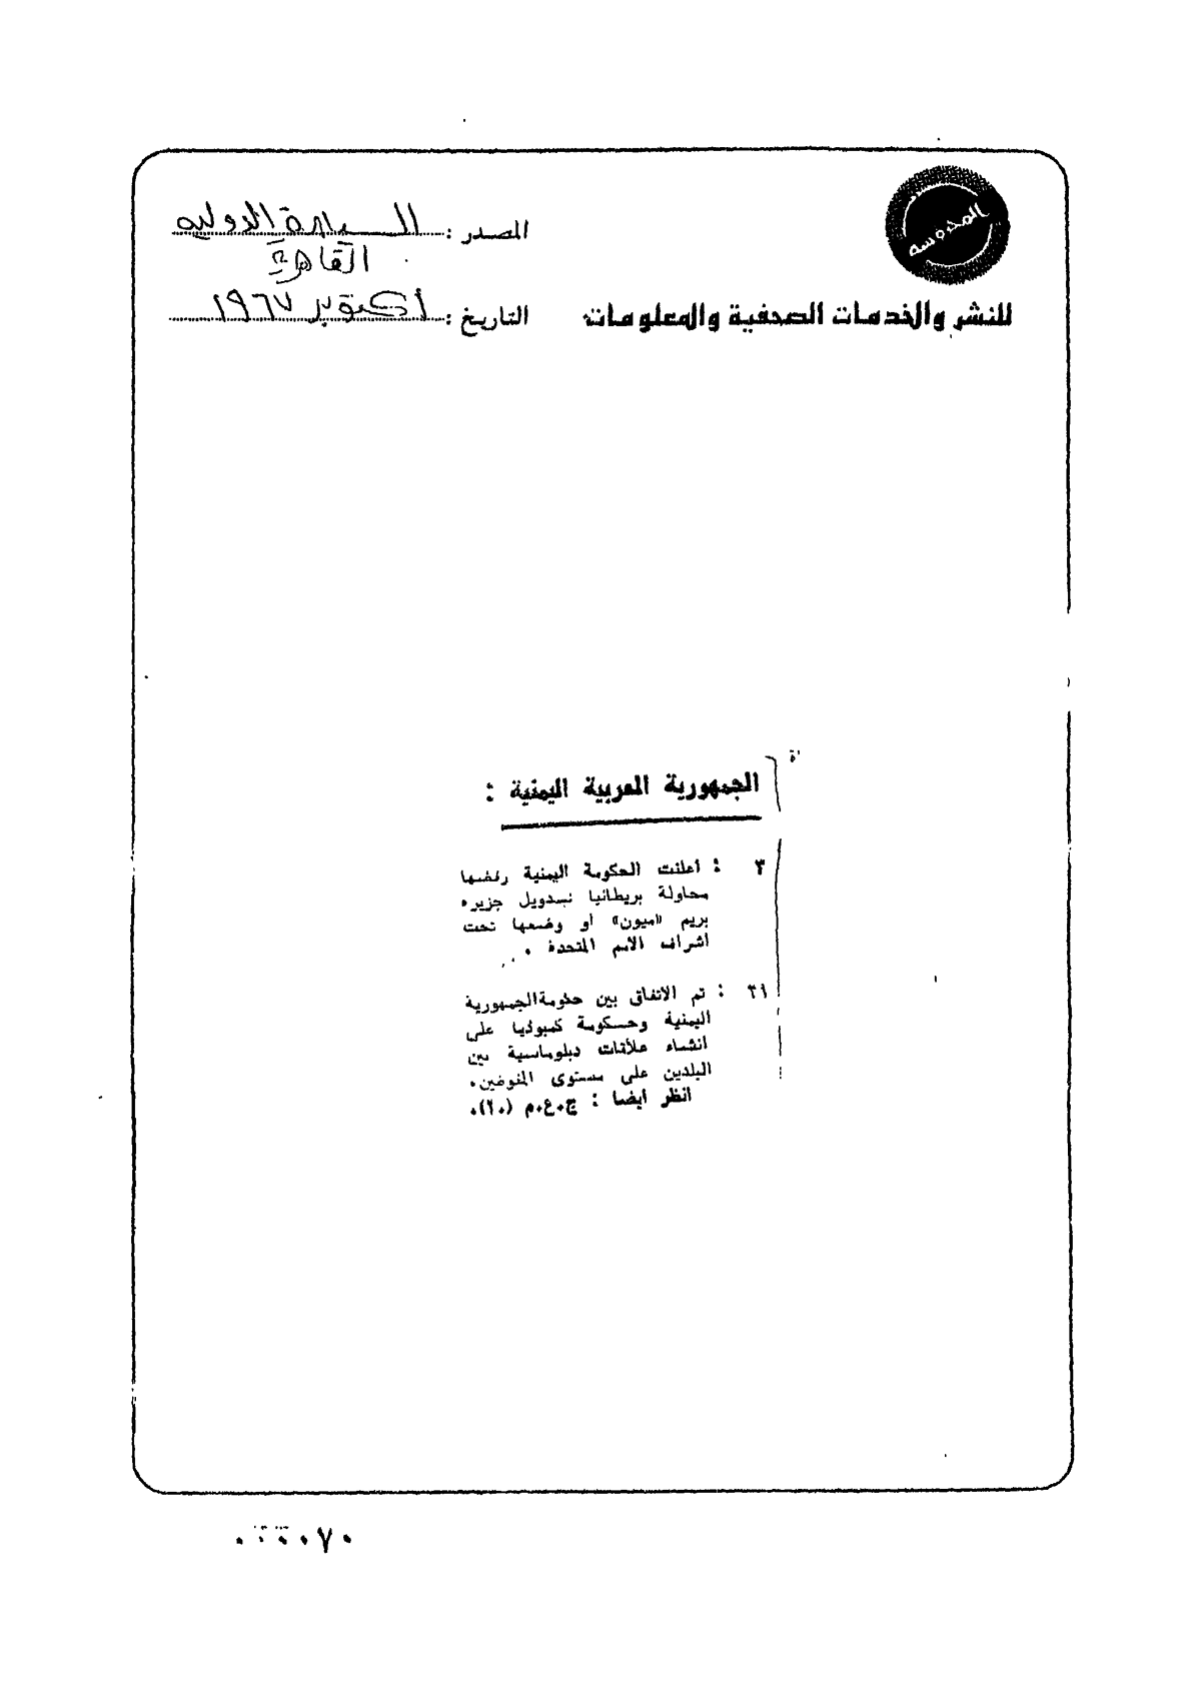 المحروسة
المصدر : السياسة الدولية
القاهرة
للنشر والخدمات الصحفية والمعلومات
التاريخ : أكتوبر ١٩٦٧
الجمهورية العربية اليمنية :
٣ : أعلنت الحكومة اليمنية رفضها
محاولة بريطانيا تسدويل جزيره
بريم «ميون» أو وضعها تحت
اشراف الأمم المتحدة .
٢١ : تم الاتفاق بين حكومة الجمهورية
اليمنية وحسكومة كمبوديا على
انشاء علاقات دبلوماسية بين
البلدين على مستوى المفوضين.
انظر ايضا : ج.ع.م (٢٠).